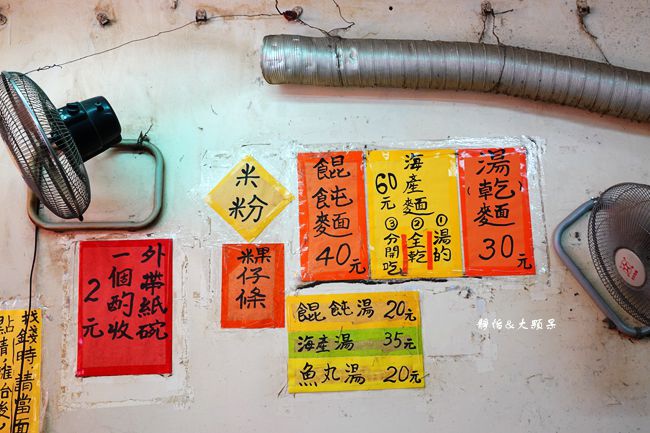 湯
(乾)麵
30元
海產麵
60元
①湯的
②全乾
③分開吃
餛
飩
麵
40元
米
粉
粿仔條
餛飩湯 20元
海產湯 35元
魚丸湯 20元
外帶紙碗
一個酌收
2元
找錢時請當面
點清,離台後
靜怡&大顆呆